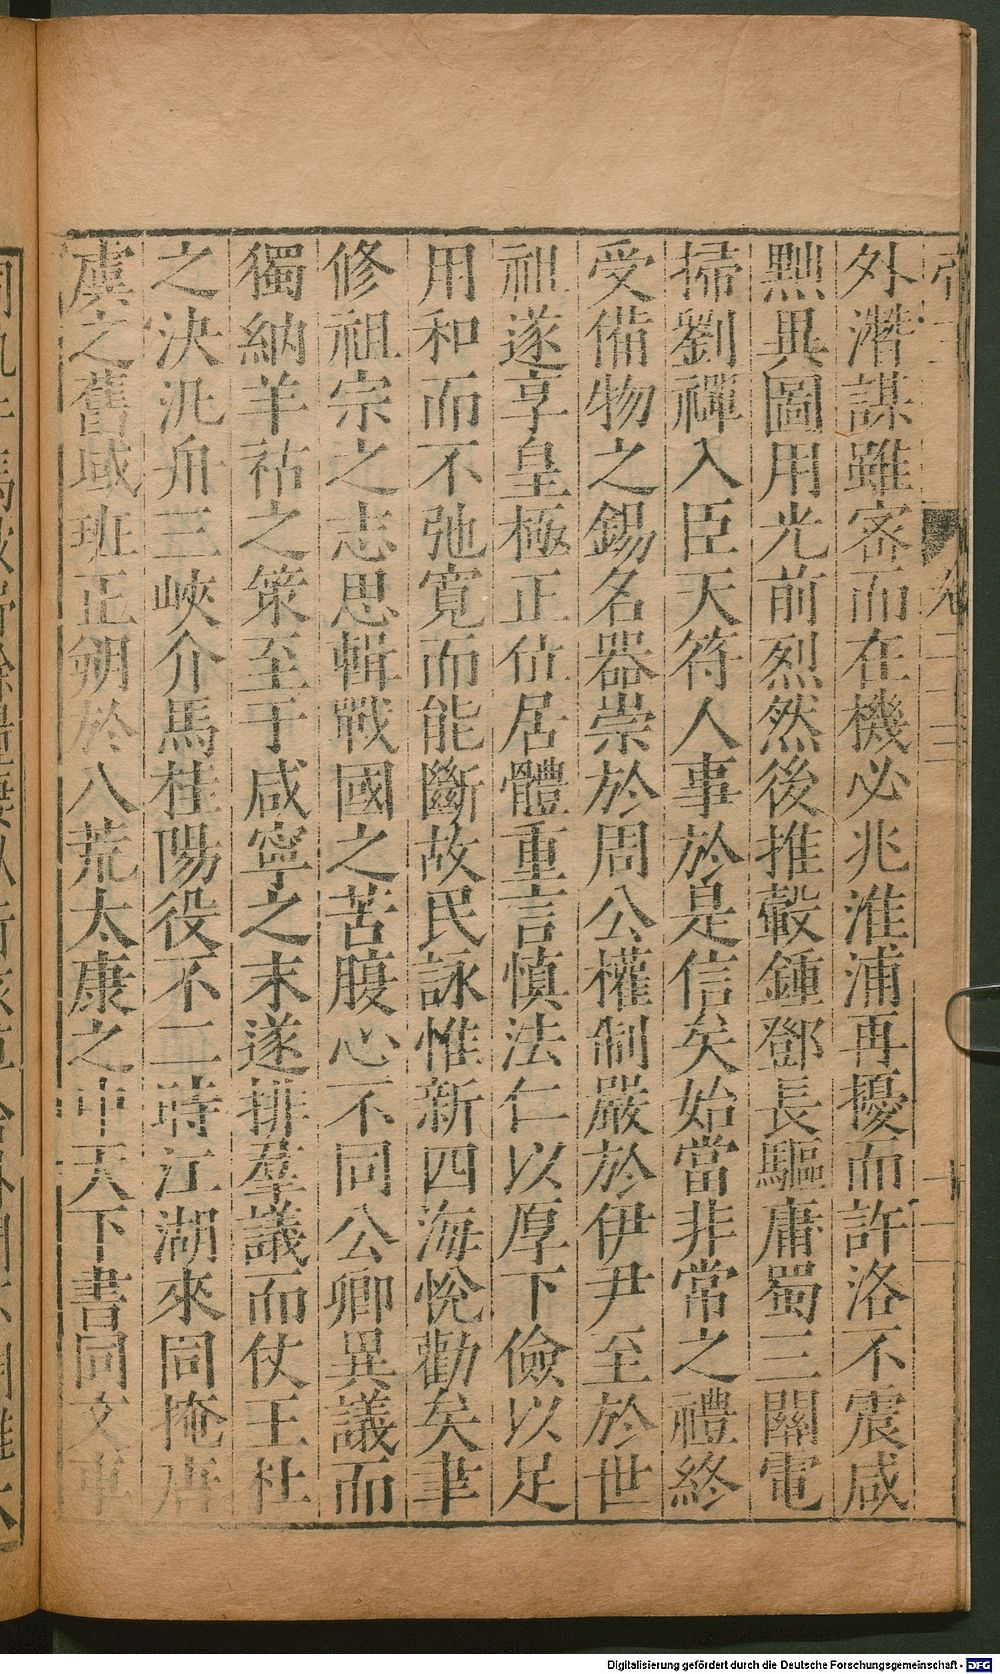 外潛謀雖密而在機必兆淮浦再擾而許洛不震咸
黜異圖用光前烈然後推轂鍾鄧長驅庸蜀三關電
掃劉禪入臣天符人事於是信矣始當非常之禮終
受備物之錫名器崇於周公權制嚴於伊尹至於世
祖遂享皇極正位居體重言慎法仁以厚下儉以足
用和而不弛寬而能斷故民詠惟新四海悅勸矣聿
修祖宗之志思輯戰國之苦腹心不同公卿異議而
獨納羊祜之策至于咸寧之末遂排羣議而仗王杜
之決汎舟三峽介馬桂陽役不二時江湖來同掩唐
虞之舊域班正朔於八荒太康之中天下書同文車
Digitalisierung gefördert durch die Deutsche Forschungsgemeinschaft - DFG